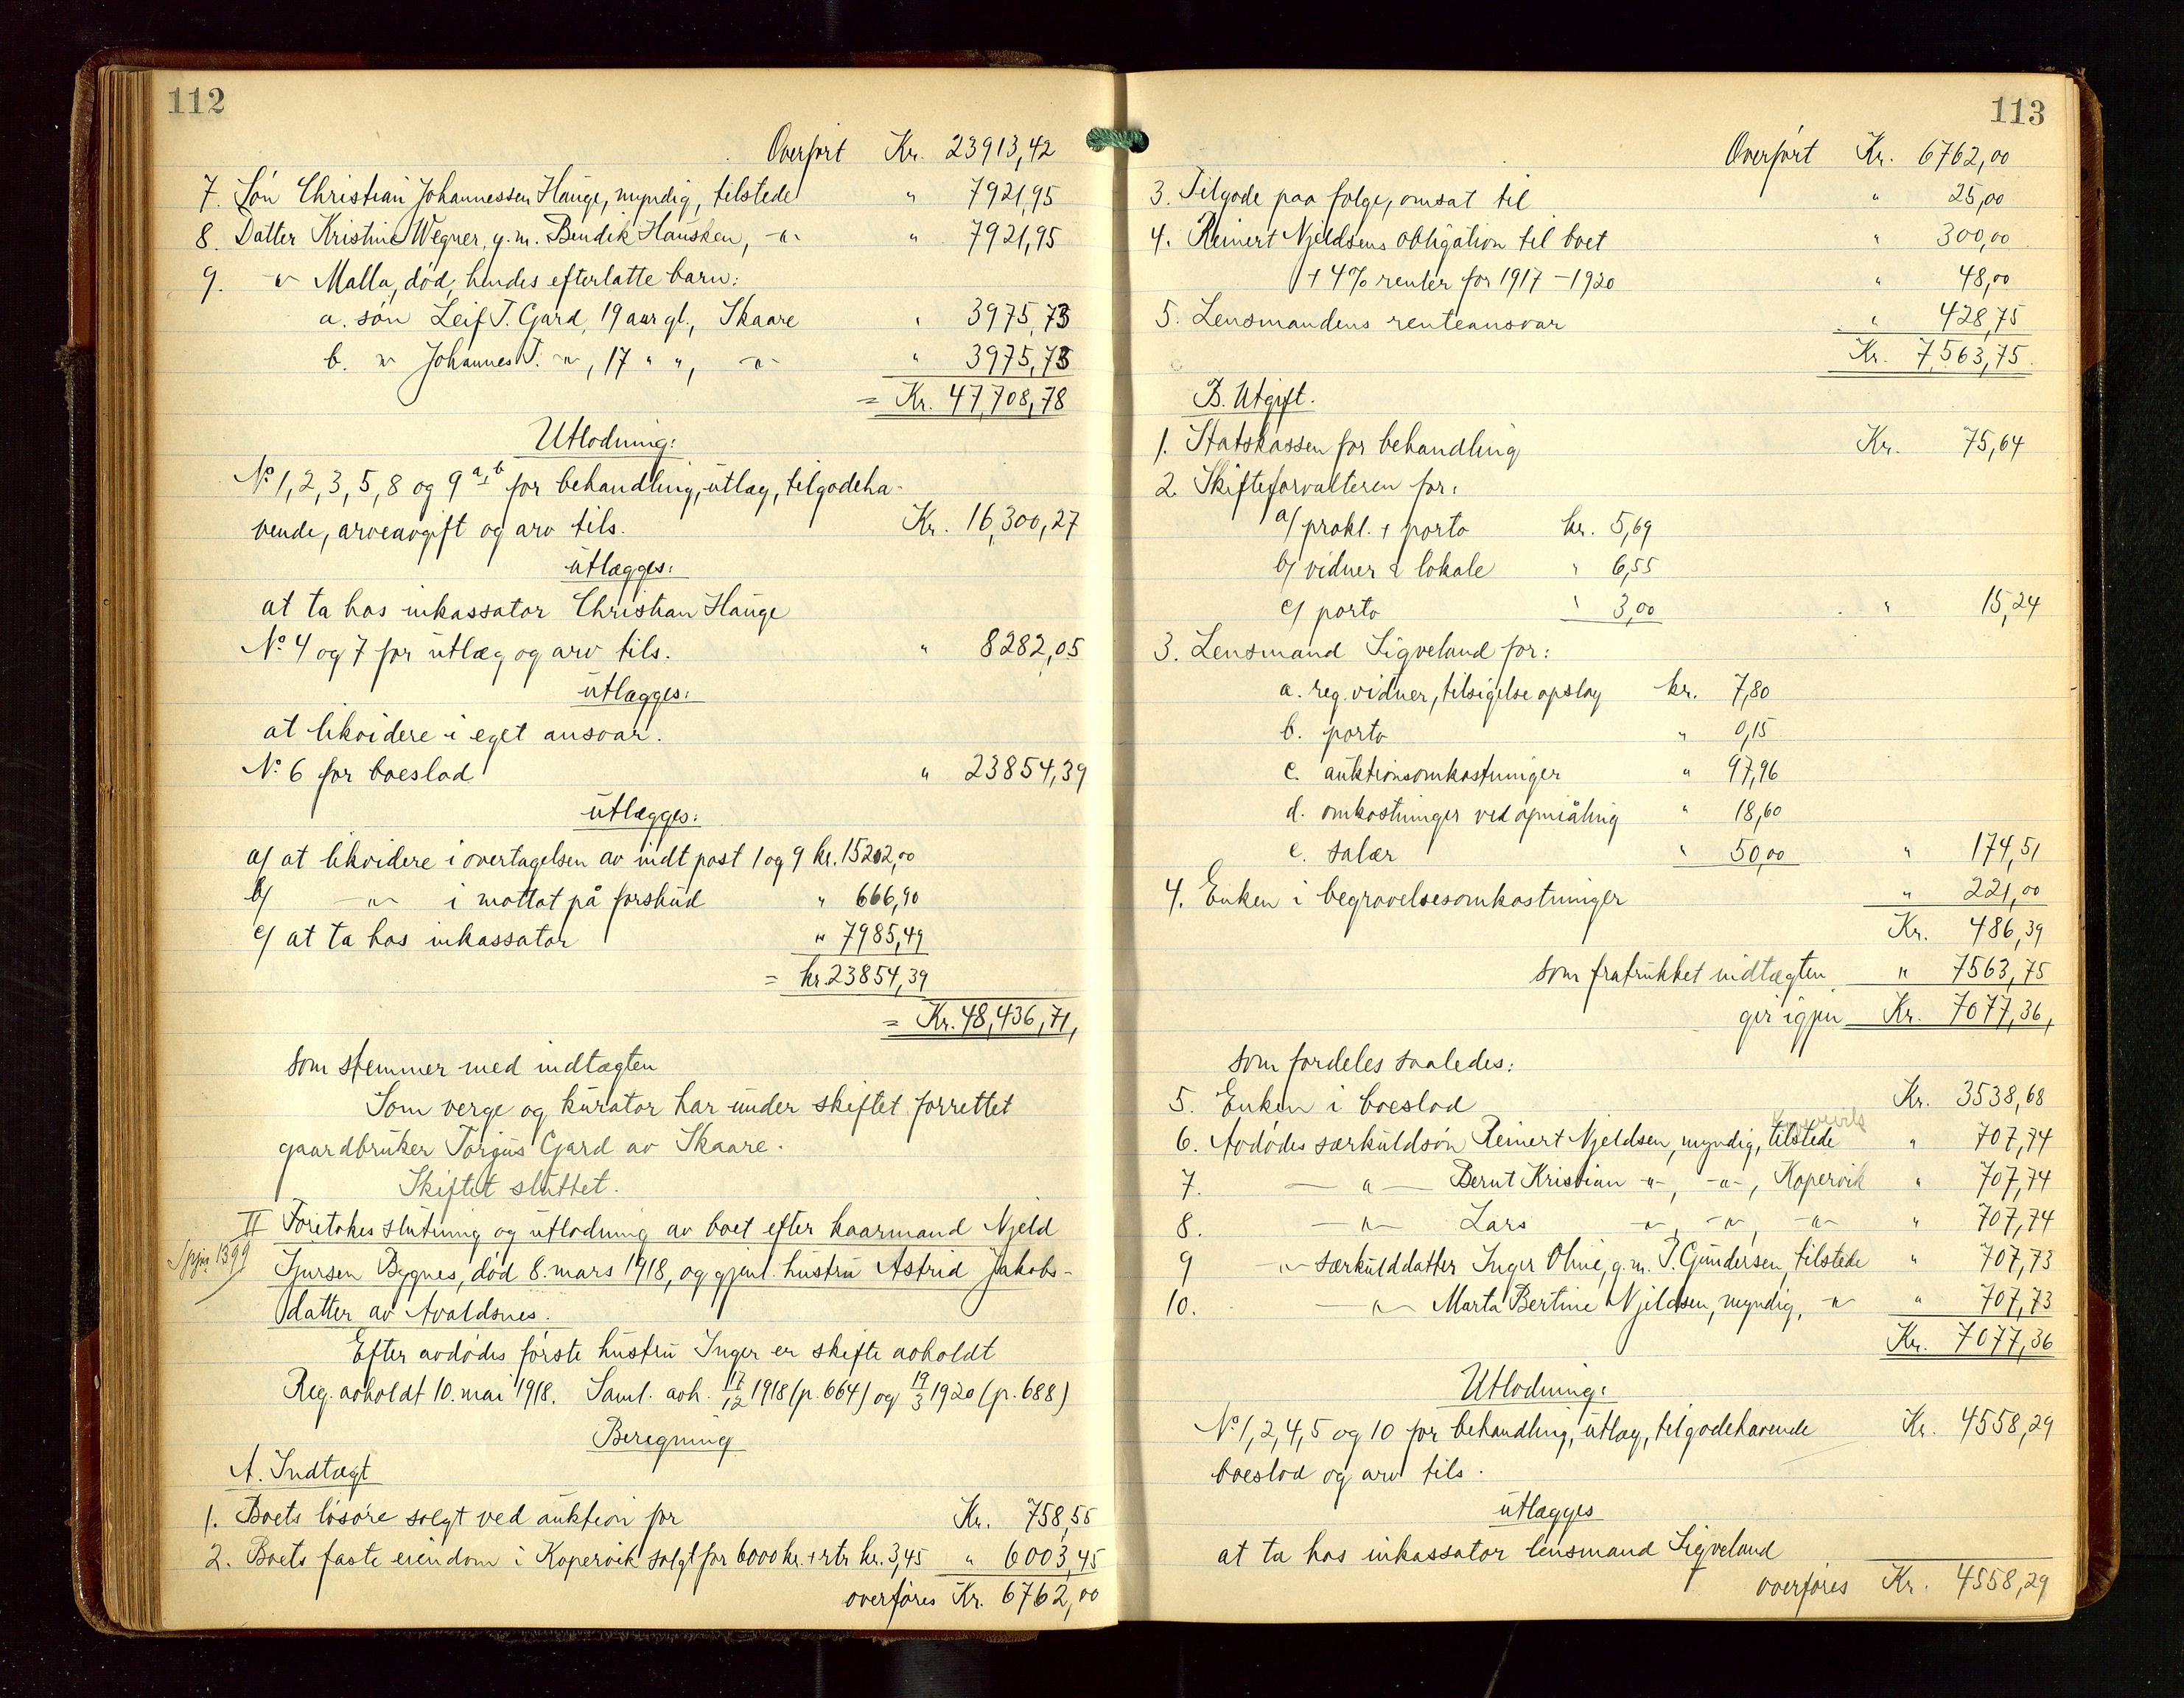 112
Overført Kr. 23913,42
7. Søn Christian Johannessen Hauge, myndig, tilstede " 7921,95
8. Datter Kristine Wegner, g.m. Bendik Hausken, -"- " 7921,95
9. -"- Malla, død, hendes efterlatte barn:
a. søn Leif T. Gard, 19 aar gl., Skaare " 3975,73
b. -"- Johannes T. -"-, 17 " ", -"- " 3975,73
= Kr. 47,708,78
Utlodning:
No 1, 2, 3, 5, 8 og 9 a, b for behandling, utlæg, tilgodeha-
vende, arveavgift og arv tils. Kr. 16,300,27
utlægges:
at ta hos inkassator Christian Hauge
No 4 og 7 for utlæg og arv tils. " 8282,05
utlægges:
at likvidere i eget ansvar.
No 6 for boeslod " 23854,39
utlægges:
a/ at likvidere i overtagelsen av indt post 1 og 9 kr. 15202,00
b/ -"- i mottat på forskud " 666,90
c/ at ta hos inkassator " 7985,49
= kr. 23854,39
= Kr. 48,436,71,
som stemmer med indtægten
Som verge og kurator har under skiftet forrettet
gaardbruker Torgius Gard av Skaare.
Skiftet sluttet.
II Foretokes slutning og utlodning av boet efter kaarmand Njeld
1399
Sjursen Bygnes, død 8. mars 1918, og gjenl. hustru Astrid Jakobs-
datter av Avaldsnes.
Efter avdødes første hustru Inger er skifte avholdt
Reg. avholdt 10. mai 1918. Saml. avh. 17/12 1918 (p. 664) og 19/3 1920 (p. 688)
Beregning
A. Indtægt
1. Boets løsøre solgt ved auktion for Kr. 758,55
2. Boets faste eiendom i Kopervik solgt for 6000 kr. + rtr kr. 3,45 " 6003,45
overføres Kr. 6762,00
113
Overført Kr. 6762,00
3. Tilgode paa følge, omsat til " 25,00
4. Reinert Njeldsens obligation til boet " 300,00
+ 4% renter for 1917 - 1920 " 48,00
5. Lensmandens renteansvar " 428,75
Kr. 7,563,75.
B. Utgift.
1. Statskassen for behandling Kr. 75,64
2. Skifteforvalteren for:
a/ prokl. + porto kr. 5,69
b/ vidner & lokale " 6,55
c/ porto " 3,00 " 15,24
3. Lensmand Sigveland for:
a. reg. vidner, tilsigelse opslag kr. 7,80
b. porto " 0,15
c. auktionsomkostninger " 97,96
d. omkostninger ved opmåling " 18,60
e. salær " 50,00 " 174,51
4. Enken i begravelsesomkostninger " 221,00
Kr. 486,39
som fratrukket indtægten " 7563,75
gir igjen Kr. 7077,36,
som fordeles saaledes:
5. Enken i boeslod Kr. 3538,68
6. Avdødes særkuldsøn Reinert Njeldsen, myndig, tilstede " 707,74
7. -"- Bernt Kristian -"-, -"-, Kopervik " 707,74
8. -"- Lars -"-, -"-, -"- " 707,74
9 -"- særkulddatter Inger Oline, g.m. P. Gundersen, tilstede " 707,73
10. -"- Marta Bertine Njeldsen, myndig, -"- " 707,73
Kr. 7077,36
Utlodning:
No 1, 2, 4, 5 og 10 for behandling, utlæg, tilgodehavende Kr. 4558,29
boeslod og arv tils.
utlægges
at ta hos inkassator lensmand Sigveland
overføres Kr. 4558,29